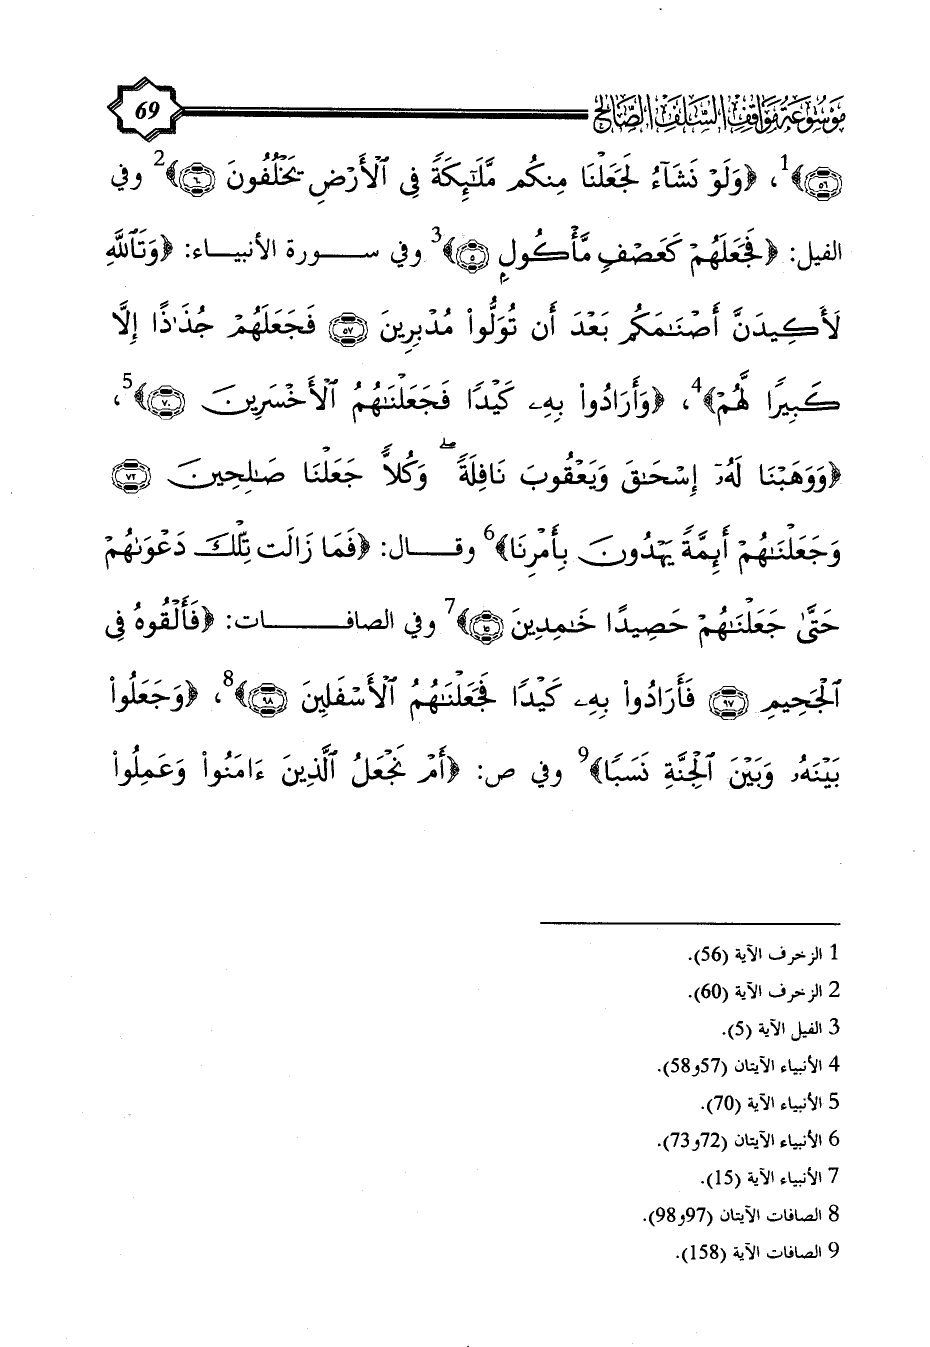 موسوعة مواقف السلف الصالح
69
﴿٥٦﴾1، ﴿وَلَوْ نَشَآءُ لَجَعَلْنَا مِنكُم مَّلَٰٓئِكَةً فِى ٱلْأَرْضِ يَخْلُفُونَ ٦٠﴾2 وفي
الفيل: ﴿فَجَعَلَهُمْ كَعَصْفٍ مَّأْكُولٍۭ ٥﴾3 وفي سورة الأنبياء: ﴿وَتَٱللَّهِ
لَأَكِيدَنَّ أَصْنَٰمَكُم بَعْدَ أَن تُوَلُّوا۟ مُدْبِرِينَ ٥٧ فَجَعَلَهُمْ جُذَٰذًا إِلَّا
كَبِيرًا لَّهُمْ﴾4، ﴿وَأَرَادُوا۟ بِهِۦ كَيْدًا فَجَعَلْنَٰهُمُ ٱلْأَخْسَرِينَ ٧٠﴾5،
﴿وَوَهَبْنَا لَهُۥٓ إِسْحَٰقَ وَيَعْقُوبَ نَافِلَةً ۖ وَكُلًّا جَعَلْنَا صَٰلِحِينَ ٧٢
وَجَعَلْنَٰهُمْ أَئِمَّةً يَهْدُونَ بِأَمْرِنَا﴾6 وقال: ﴿فَمَا زَالَت تِّلْكَ دَعْوَىٰهُمْ
حَتَّىٰ جَعَلْنَٰهُمْ حَصِيدًا خَٰمِدِينَ ١٥﴾7 وفي الصافات: ﴿فَأَلْقُوهُ فِى
ٱلْجَحِيمِ ٩٧ فَأَرَادُوا۟ بِهِۦ كَيْدًا فَجَعَلْنَٰهُمُ ٱلْأَسْفَلِينَ ٩٨﴾8، ﴿وَجَعَلُوا۟
بَيْنَهُۥ وَبَيْنَ ٱلْجِنَّةِ نَسَبًا﴾9 وفي ص: ﴿أَمْ نَجْعَلُ ٱلَّذِينَ ءَامَنُوا۟ وَعَمِلُوا۟
1 الزخرف الآية (56).
2 الزخرف الآية (60).
3 الفيل الآية (5).
4 الأنبياء الآيتان (57و58).
5 الأنبياء الآية (70).
6 الأنبياء الآيتان (72و73).
7 الأنبياء الآية (15).
8 الصافات الآيتان (97و98).
9 الصافات الآية (158).